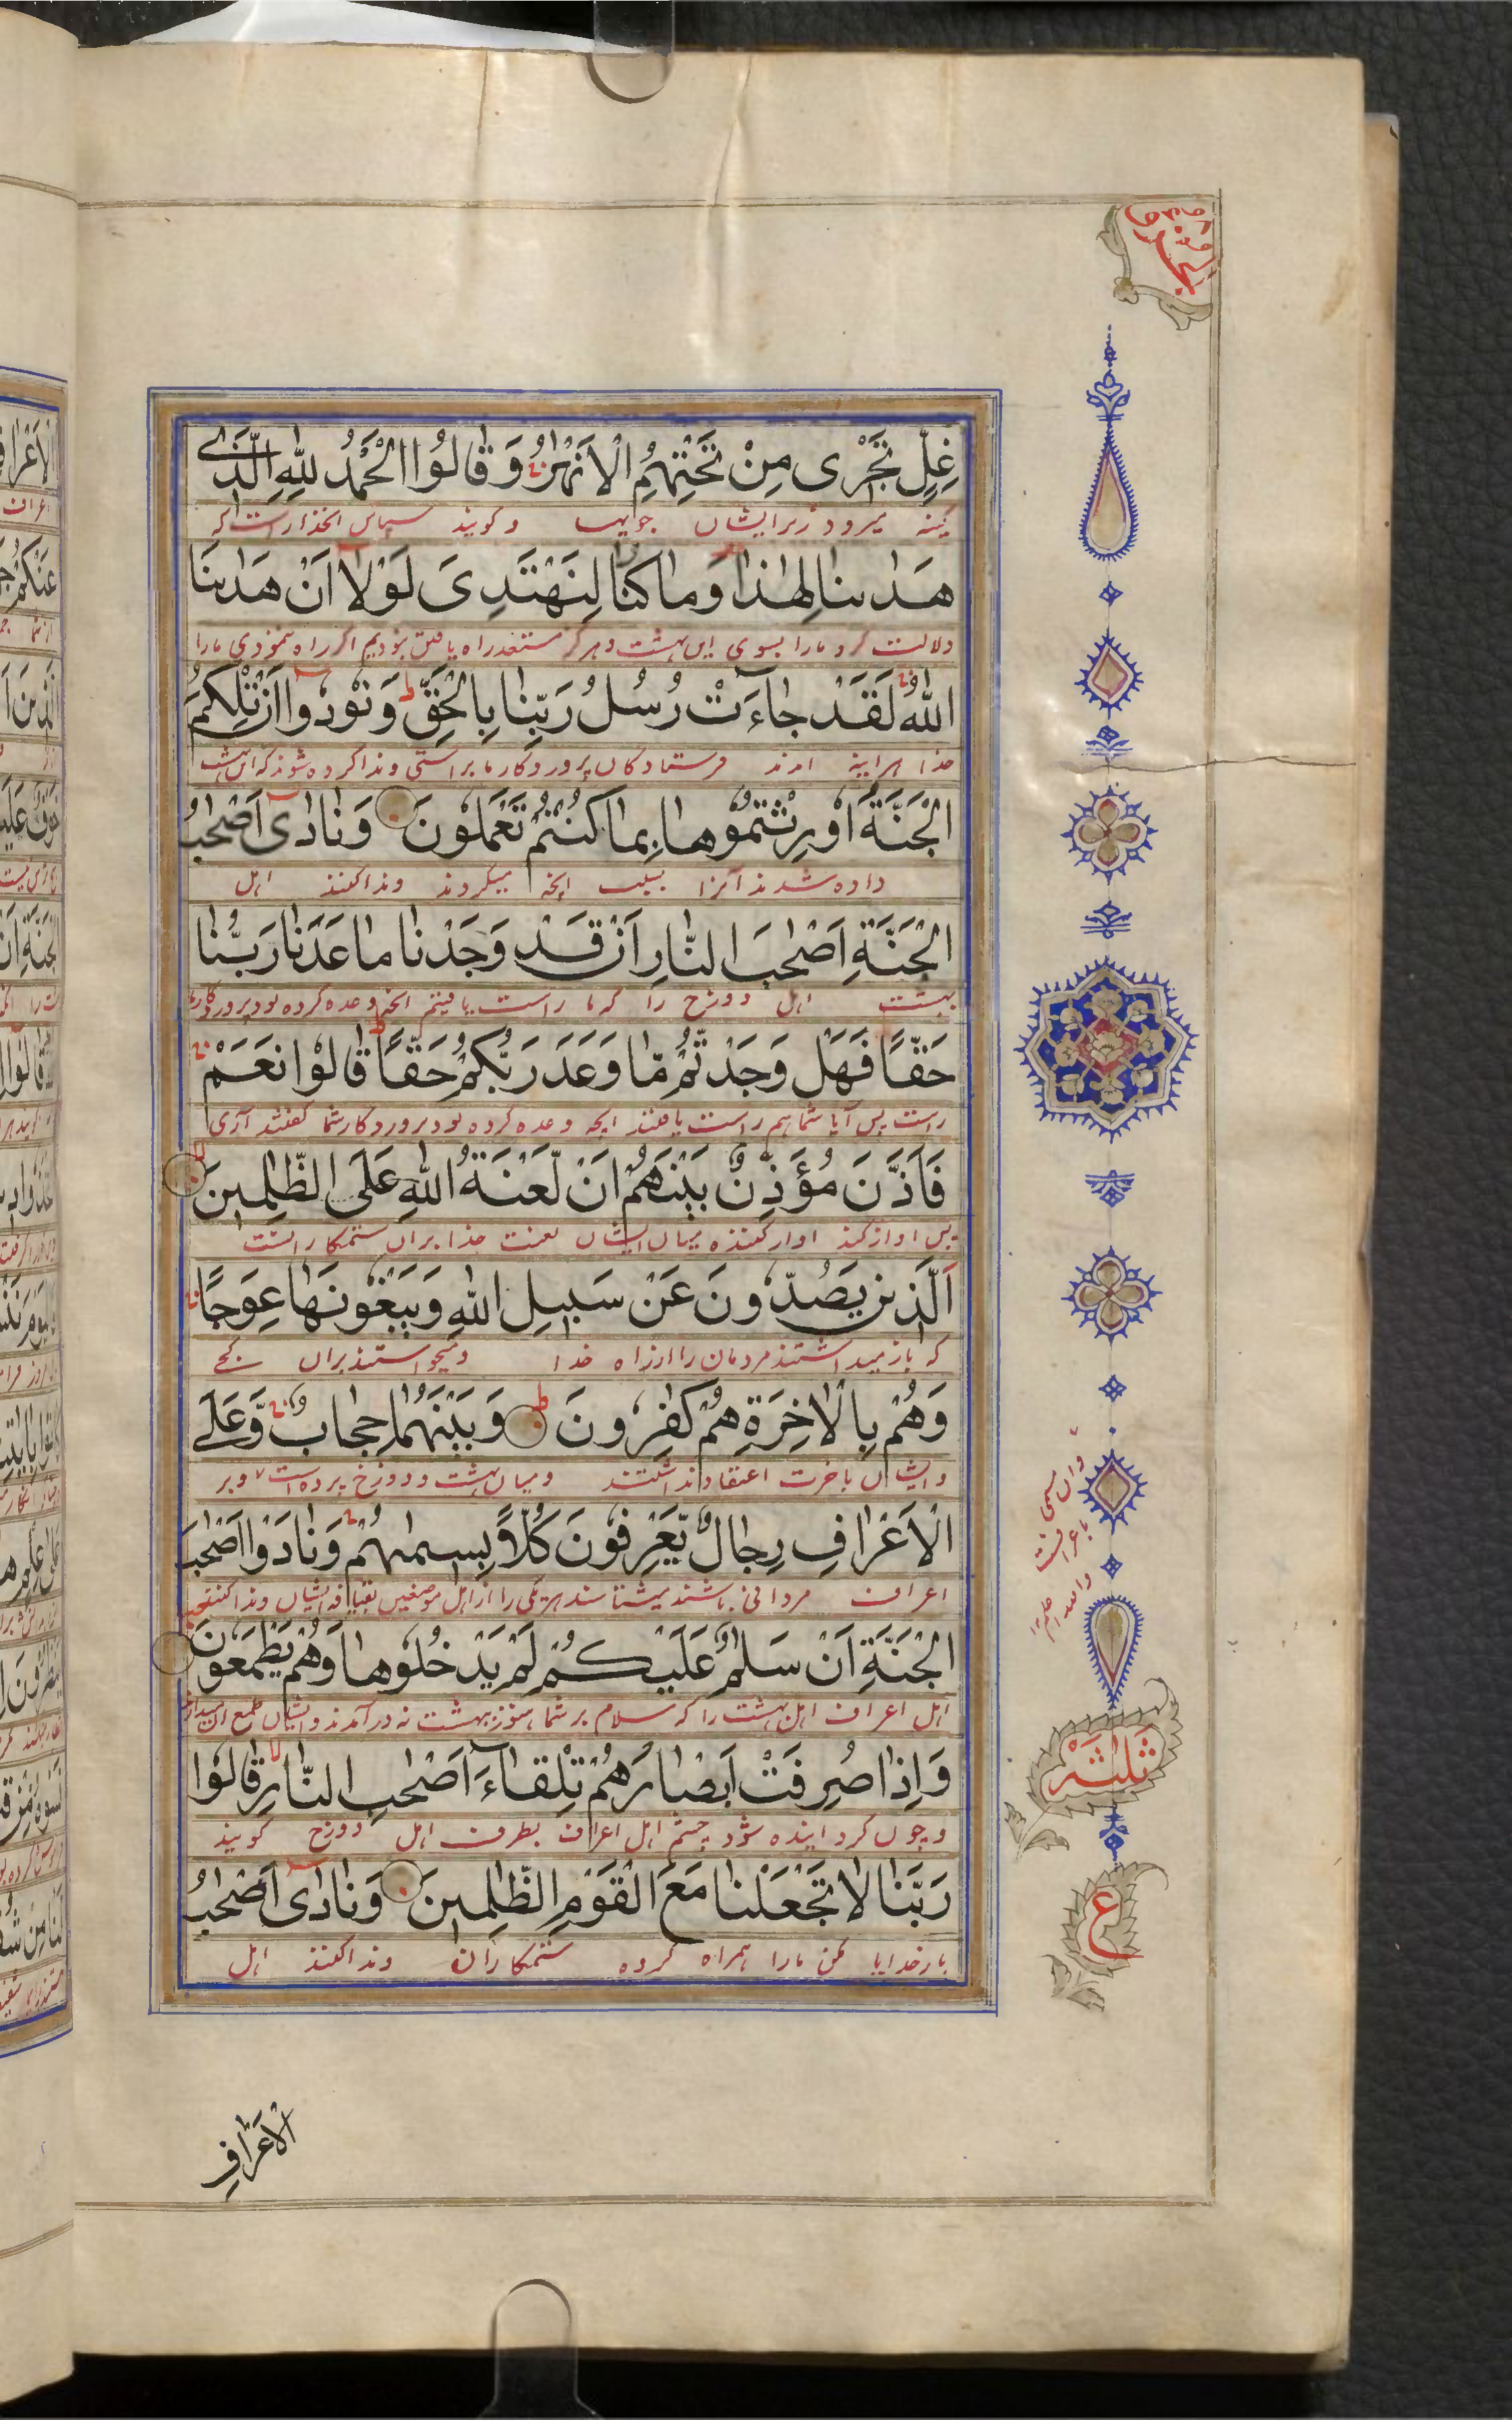 غِلٍّ تَجْرِی مِنْ تَحْتِهِمُ الْاَنْهٰرُ وَ قَالُوا الْحَمْدُ لِلّٰهِ الَّذِی
کینه میرود زیر ایشان جویها و کویند سپاس انخدا راست که
هَدٰىنَا لِهٰذَا وَمَا كُنَّا لِنَهْتَدِیَ لَوْلَا اَنْ هَدٰىنَا
دلالت کرد مارا بسوی این بهشت و هرگز مستعد راه یافتن نبودیم اگر راه ننمودی مارا
اللّٰهُ لَقَدْ جَاءَتْ رُسُلُ رَبِّنَا بِالْحَقِّ وَنُودُوا اَنْ تِلْكُمُ
خدا هراینه امدند فرستادکان پروردکار ما براستی وندا کرده شوند که این بهشت
الْجَنَّةُ اُورِثْتُمُوهَا بِمَا كُنْتُمْ تَعْمَلُونَ وَنَادٰی اَصْحٰبُ
داده شدند آنرا بسبب انچه میکردند وندا کنند اهل
الْجَنَّةِ اَصْحٰبَ النَّارِ اَنْ قَدْ وَجَدْنَا مَا وَعَدَنَا رَبُّنَا
بهشت اهل دوزخ را که ما راست یافتیم انچه وعده کرده بود پروردکار ما
حَقًّا فَهَلْ وَجَدْتُمْ مَّا وَعَدَ رَبُّكُمْ حَقًّا قَالُوْا نَعَمْ
راست پس آیا شما هم راست یافتند انچه وعده کرده بود پروردکار شما گفتند آری
فَاَذَّنَ مُؤَذِّنٌ بَيْنَهُمْ اَنْ لَّعْنَةُ اللّٰهِ عَلَی الظّٰلِمِينَ
پس اواز کند اواز کننده میان ایشان لعنت خدا بران ستمکار انست
اَلَّذِينَ يَصُدُّونَ عَنْ سَبِيلِ اللّٰهِ وَيَبْغُونَهَا عِوَجًا
که باز میداشتند مردمان را از راه خدا و میخواستند بران کجی
وَهُمْ بِالْاٰخِرَةِ هُمْ كٰفِرُونَ وَبَيْنَهُمَا حِجَابٌ وَّعَلَی
وایشان باخرت اعتقاد نداشتند ومیان بهشت ودوزخ پرده است وبر
الْاَعْرَافِ رِجَالٌ يَّعْرِفُونَ كُلًّا بِسِيمٰىهُمْ وَنَادَوْا اَصْحٰبَ
اعراف مردانی باشند میشناسند هریکی را از اهل موضعین بقیافه ایشان وندا کنند
الْجَنَّةِ اَنْ سَلٰمٌ عَلَيْكُمْ لَمْ يَدْخُلُوهَا وَهُمْ يَطْمَعُونَ
اهل اعراف اهل بهشت را که سلام بر شما هنوز ببهشت نه درآمدند وایشان طمع ان میدارند
وَاِذَا صُرِفَتْ اَبْصَارُهُمْ تِلْقَاءَ اَصْحٰبِ النَّارِ قَالُوْا
و چون کردانیده شود چشم اهل اعراف بطرف اهل دوزخ کویند
رَبَّنَا لَا تَجْعَلْنَا مَعَ الْقَوْمِ الظّٰلِمِينَ وَنَادٰی اَصْحٰبُ
بار خدایا مکن مارا همراه کروه ستمکاران وندا کنند اهل
وان مسمی
باعرافست
والله اعلم
ثلثه
ع
الْاَعْرَافِ